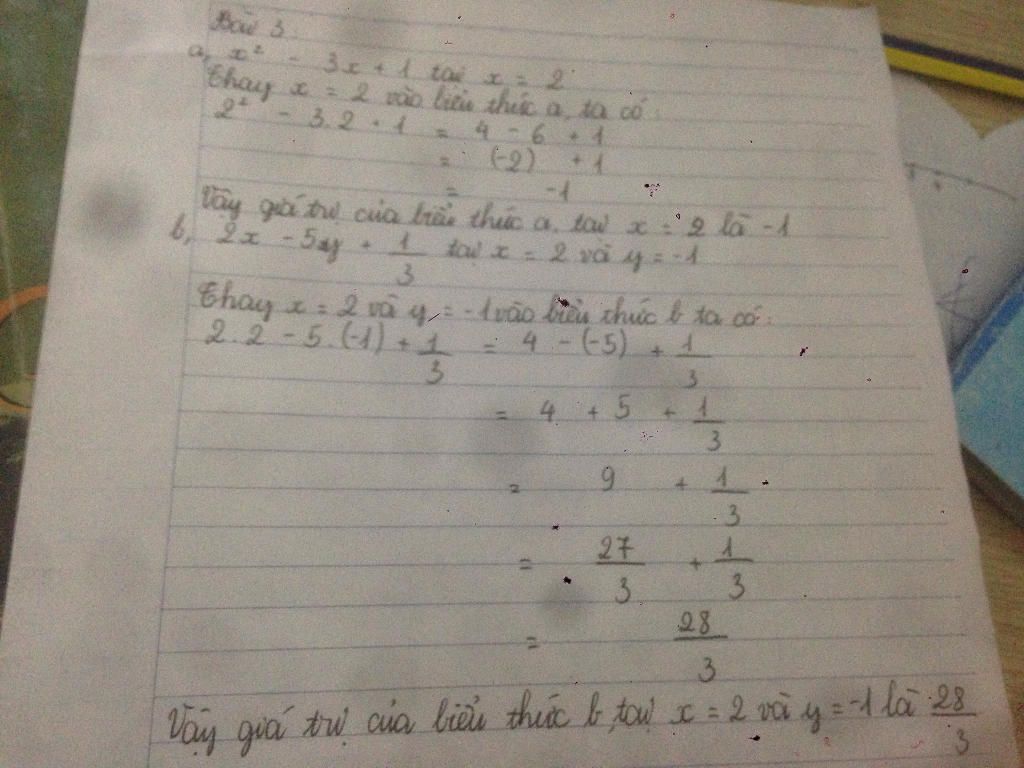 Bài 3:
a, x² - 3x + 1 tại x = 2
Thay x = 2 vào biểu thức a, ta có:
2² - 3.2 + 1 = 4 - 6 + 1
= (-2) + 1
= -1
Vậy giá trị của biểu thức a, tại x = 2 là -1
b, 2x - 5y + 1/3 tại x = 2 và y = -1
Thay x = 2 và y = -1 vào biểu thức b ta có:
2.2 - 5.(-1) + 1/3 = 4 - (-5) + 1/3
= 4 + 5 + 1/3
= 9 + 1/3
= 27/3 + 1/3
= 28/3
Vậy giá trị của biểu thức b, tại x = 2 và y = -1 là 28/3